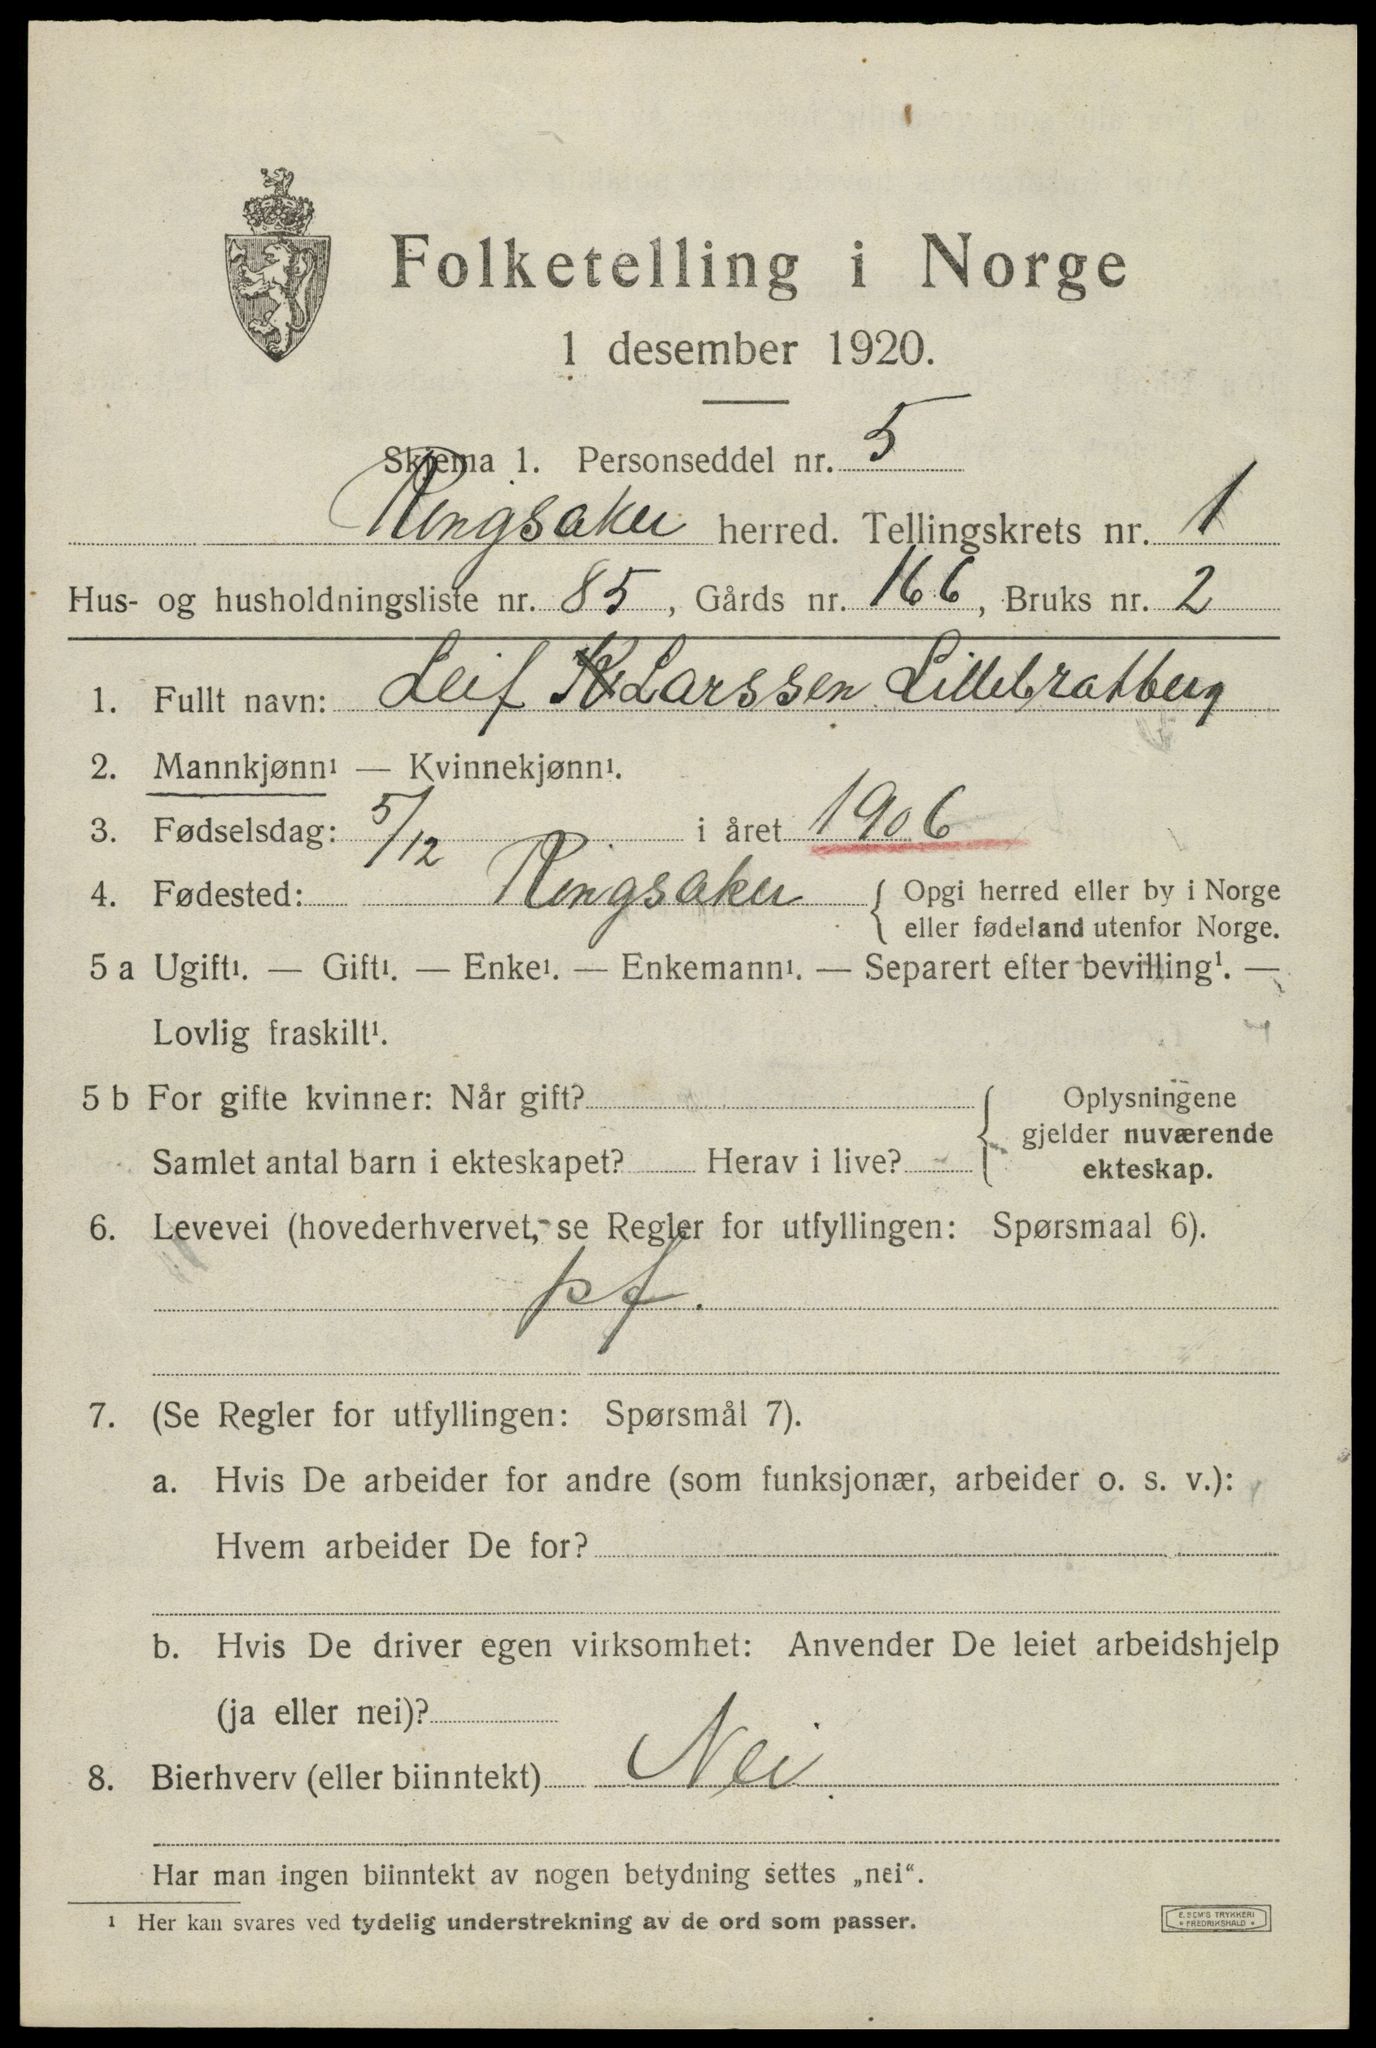 Folketelling i Norge
1 desember 1920.
Skjema 1. Personseddel nr. 5
Ringsaker herred. Tellingskrets nr. 1
Hus- og husholdningsliste nr. 85, Gårds nr. 166, Bruks nr. 2
1. Fullt navn: Leif Larssen Lillebratberg
2. Mannkjønn¹ — Kvinnekjønn¹.
3. Fødselsdag: 5/12 i året 1906
4. Fødested: Ringsaker { Opgi herred eller by i Norge
eller fødeland utenfor Norge.
5 a Ugift¹. — Gift¹. — Enke¹. — Enkemann¹. — Separert efter bevilling¹. —
Lovlig fraskilt¹.
5 b For gifte kvinner: Når gift? { Oplysningene
gjelder nuværende
Samlet antal barn i ekteskapet? Herav i live? ekteskap.
6. Levevei (hovederhvervet, se Regler for utfyllingen: Spørsmaal 6).
pf.
7. (Se Regler for utfyllingen: Spørsmål 7).
a. Hvis De arbeider for andre (som funksjonær, arbeider o. s. v.):
Hvem arbeider De for?
b. Hvis De driver egen virksomhet: Anvender De leiet arbeidshjelp
(ja eller nei)?
8. Bierhverv (eller biinntekt) Nei
Har man ingen biinntekt av nogen betydning settes „nei“.
¹ Her kan svares ved tydelig understrekning av de ord som passer.
E. SEM'S TRYKKERI
• FREDRIKSHALD •